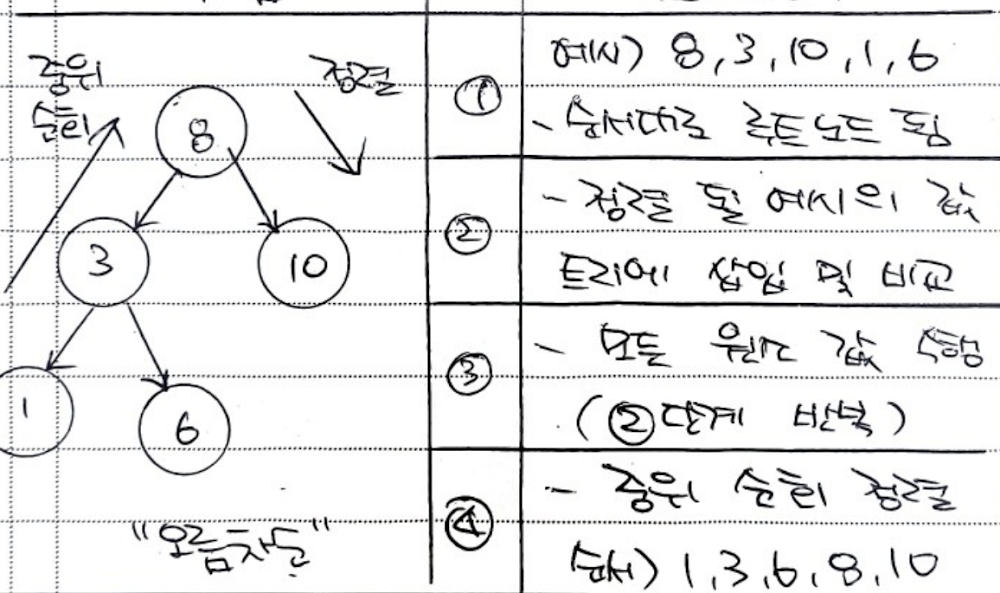 중위
순회
정렬
8
3
10
1
6
"오름차순"
①
예시) 8, 3, 10, 1, 6
- 순서대로 루트노드 됨
②
- 정렬 될 예시의 값
트리에 삽입 및 비교
③
- 모든 원소 값 수행
(②단계 반복)
④
- 중위 순회 정렬
순서) 1, 3, 6, 8, 10